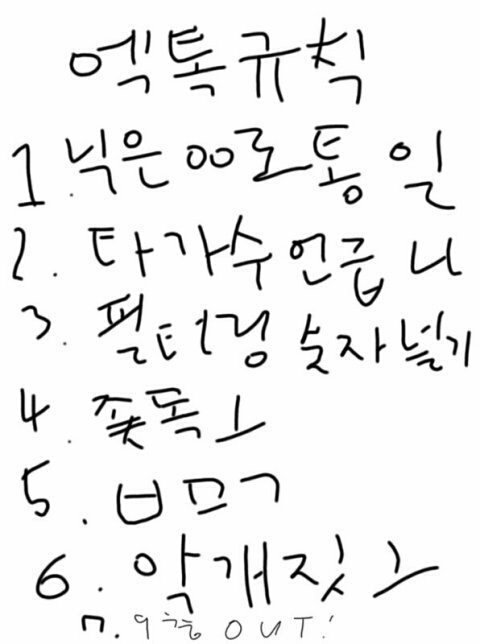 엑톡규칙
1. 닉은 00로통일
2. 타가수언급 ㄴㄴ
3. 필터링 숫자넣기
4. 쫒톡ㅗ
5. ㅂㅁㄱ
6. 악개짓ㅗ
7. 9층 OUT!